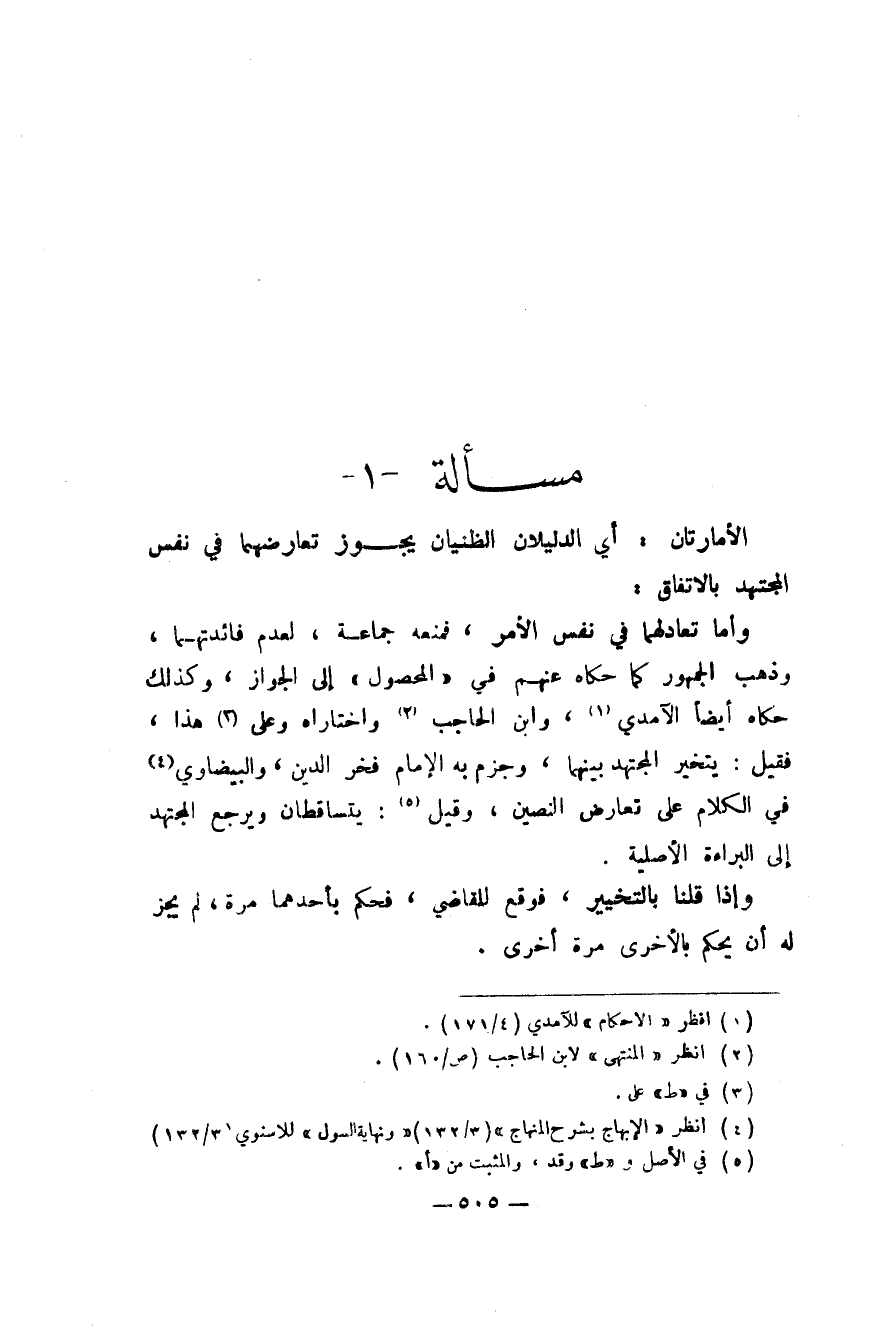 مسألة -١-
الأمارتان : أي الدليلان الظنيان يجوز تعارضهما في نفس
المجتهد بالاتفاق :
وأما تعادلهما في نفس الأمر ، فمنعه جماعة ، لعدم فائدتهما ،
وذهب الجمهور كما حكاه عنهم في «المحصول» إلى الجواز ، وكذلك
حكاه أيضاً الآمدي (١) ، وابن الحاجب (٢) واختاراه وعلى (٣) هذا ،
فقيل : يتخير المجتهد بينهما ، وجزم به الإمام فخر الدين ، والبيضاوي(٤)
في الكلام على تعارض النصين ، وقيل (٥) : يتساقطان ويرجع المجتهد
إلى البراءة الأصلية .
وإذا قلنا بالتخيير ، فوقع للقاضي ، فحكم بأحدهما مرة ، لم يجز
له أن يحكم بالأخرى مرة أخرى .
(١) انظر « الاحكام » للآمدي (١٧١/٤) .
(٢) انظر « المنتهى » لابن الحاجب (ص/١٦٠) .
(٣) في «ط» على .
(٤) انظر « الإبهاج بشرح المنهاج »(١٣٢/٣)« ونهاية السول » للاسنوي (١٣٢/٣)
(٥) في الأصل و «ط» وقد ، والمثبت من «أ» .
— ٥٠٥ —